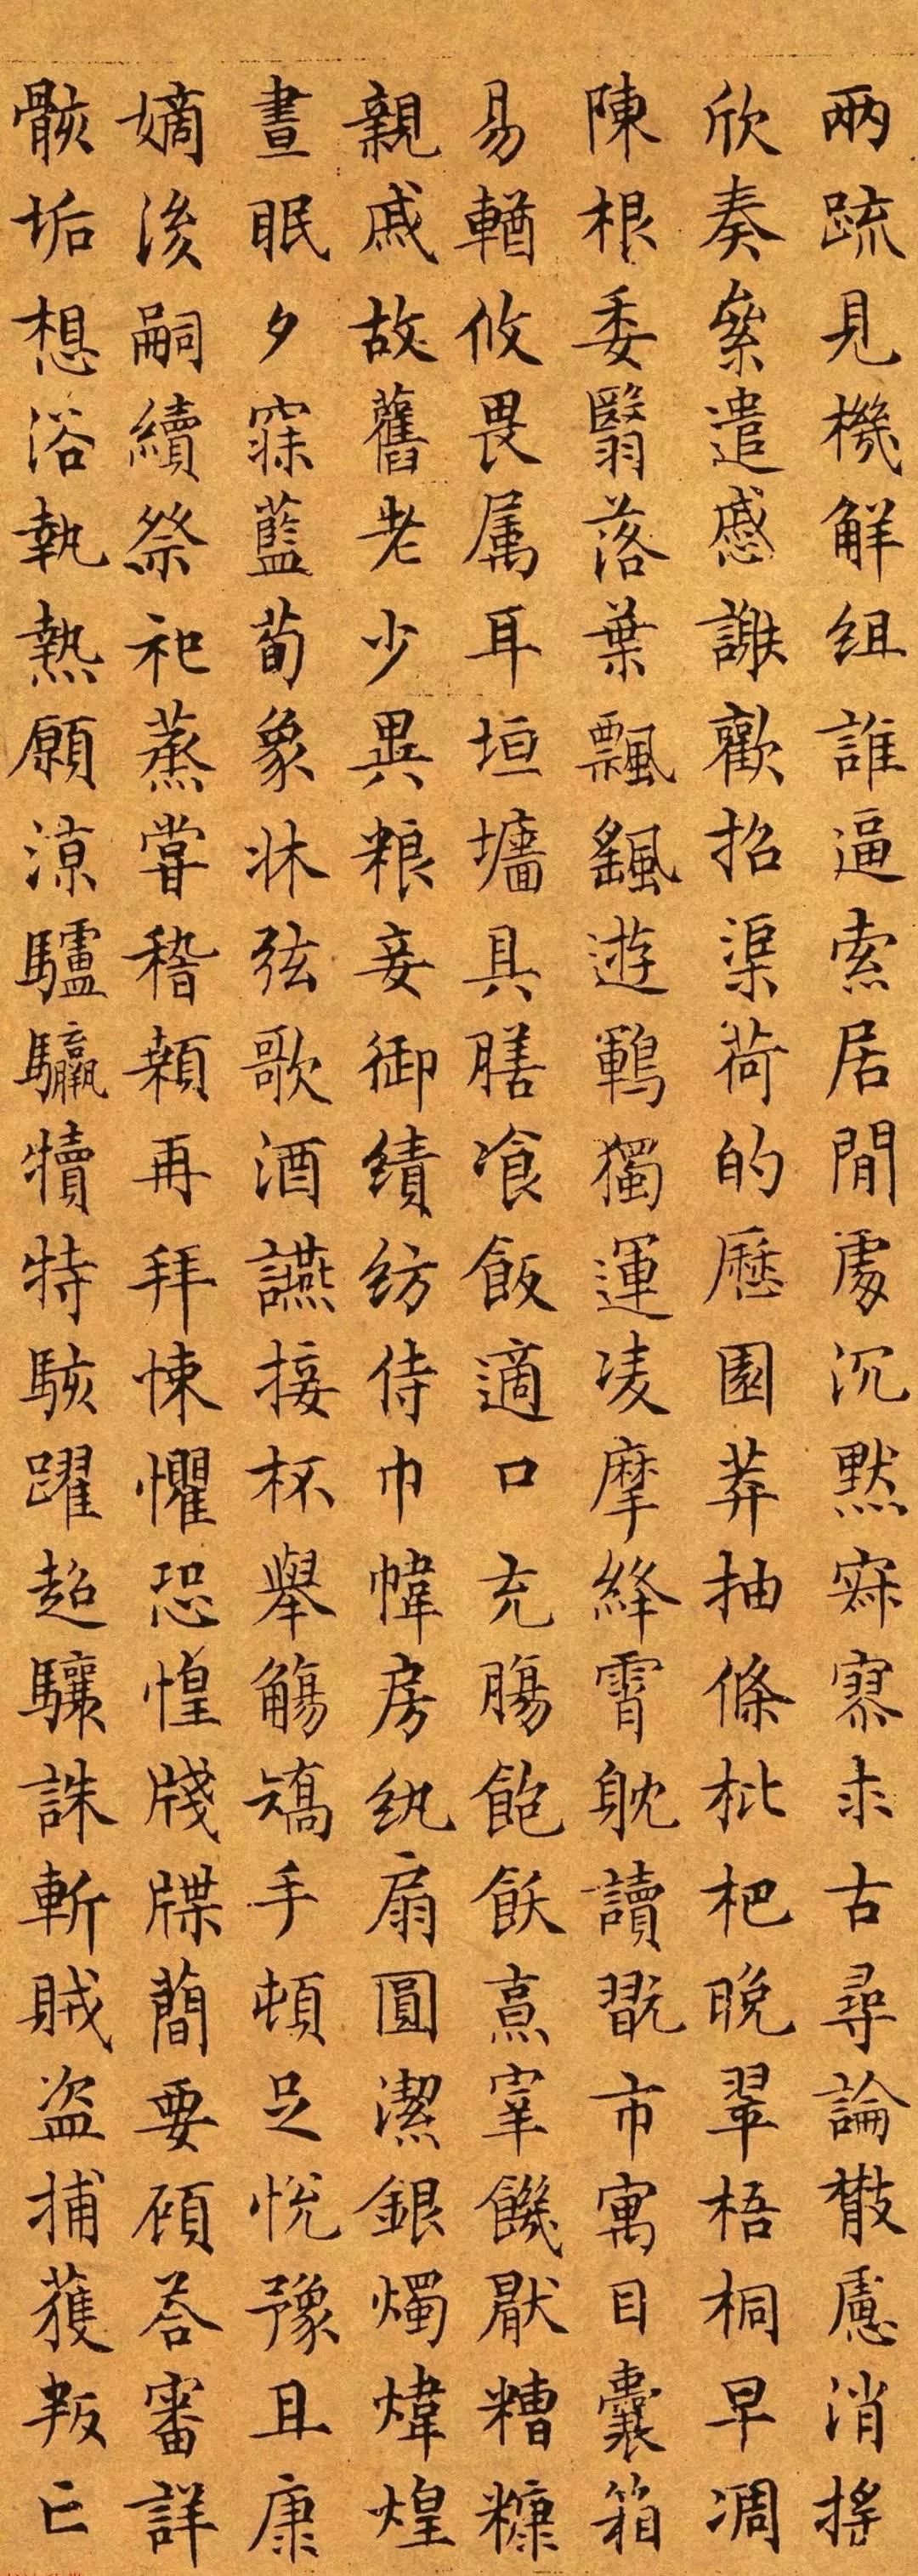 兩疏見機解組誰逼索居閒處沉默寂寥求古尋論散慮消搖
欣奏累遣慼謝歡招渠荷的歷園莽抽條枇杷晚翠梧桐早凋
陳根委翳落葉飄颻遊鶤獨運凌摩絳霄躭讀翫市寓目囊箱
易輶攸畏属耳垣墻具膳飡飯適口充腸飽飫烹宰饑厭糟糠
親戚故舊老少異粮妾御績紡侍巾幃房紈扇圓潔銀燭煒煌
晝眠夕寐藍荀象牀弦歌酒讌接杯舉觴矯手頓足悅豫且康
嫡後嗣續祭祀蒸嘗稽顙再拜悚懼恐惶牋牒簡要顧答審詳
骸垢想浴執熱願涼驢驘犢特駭躍超驤誅斬賊盜捕獲叛亡